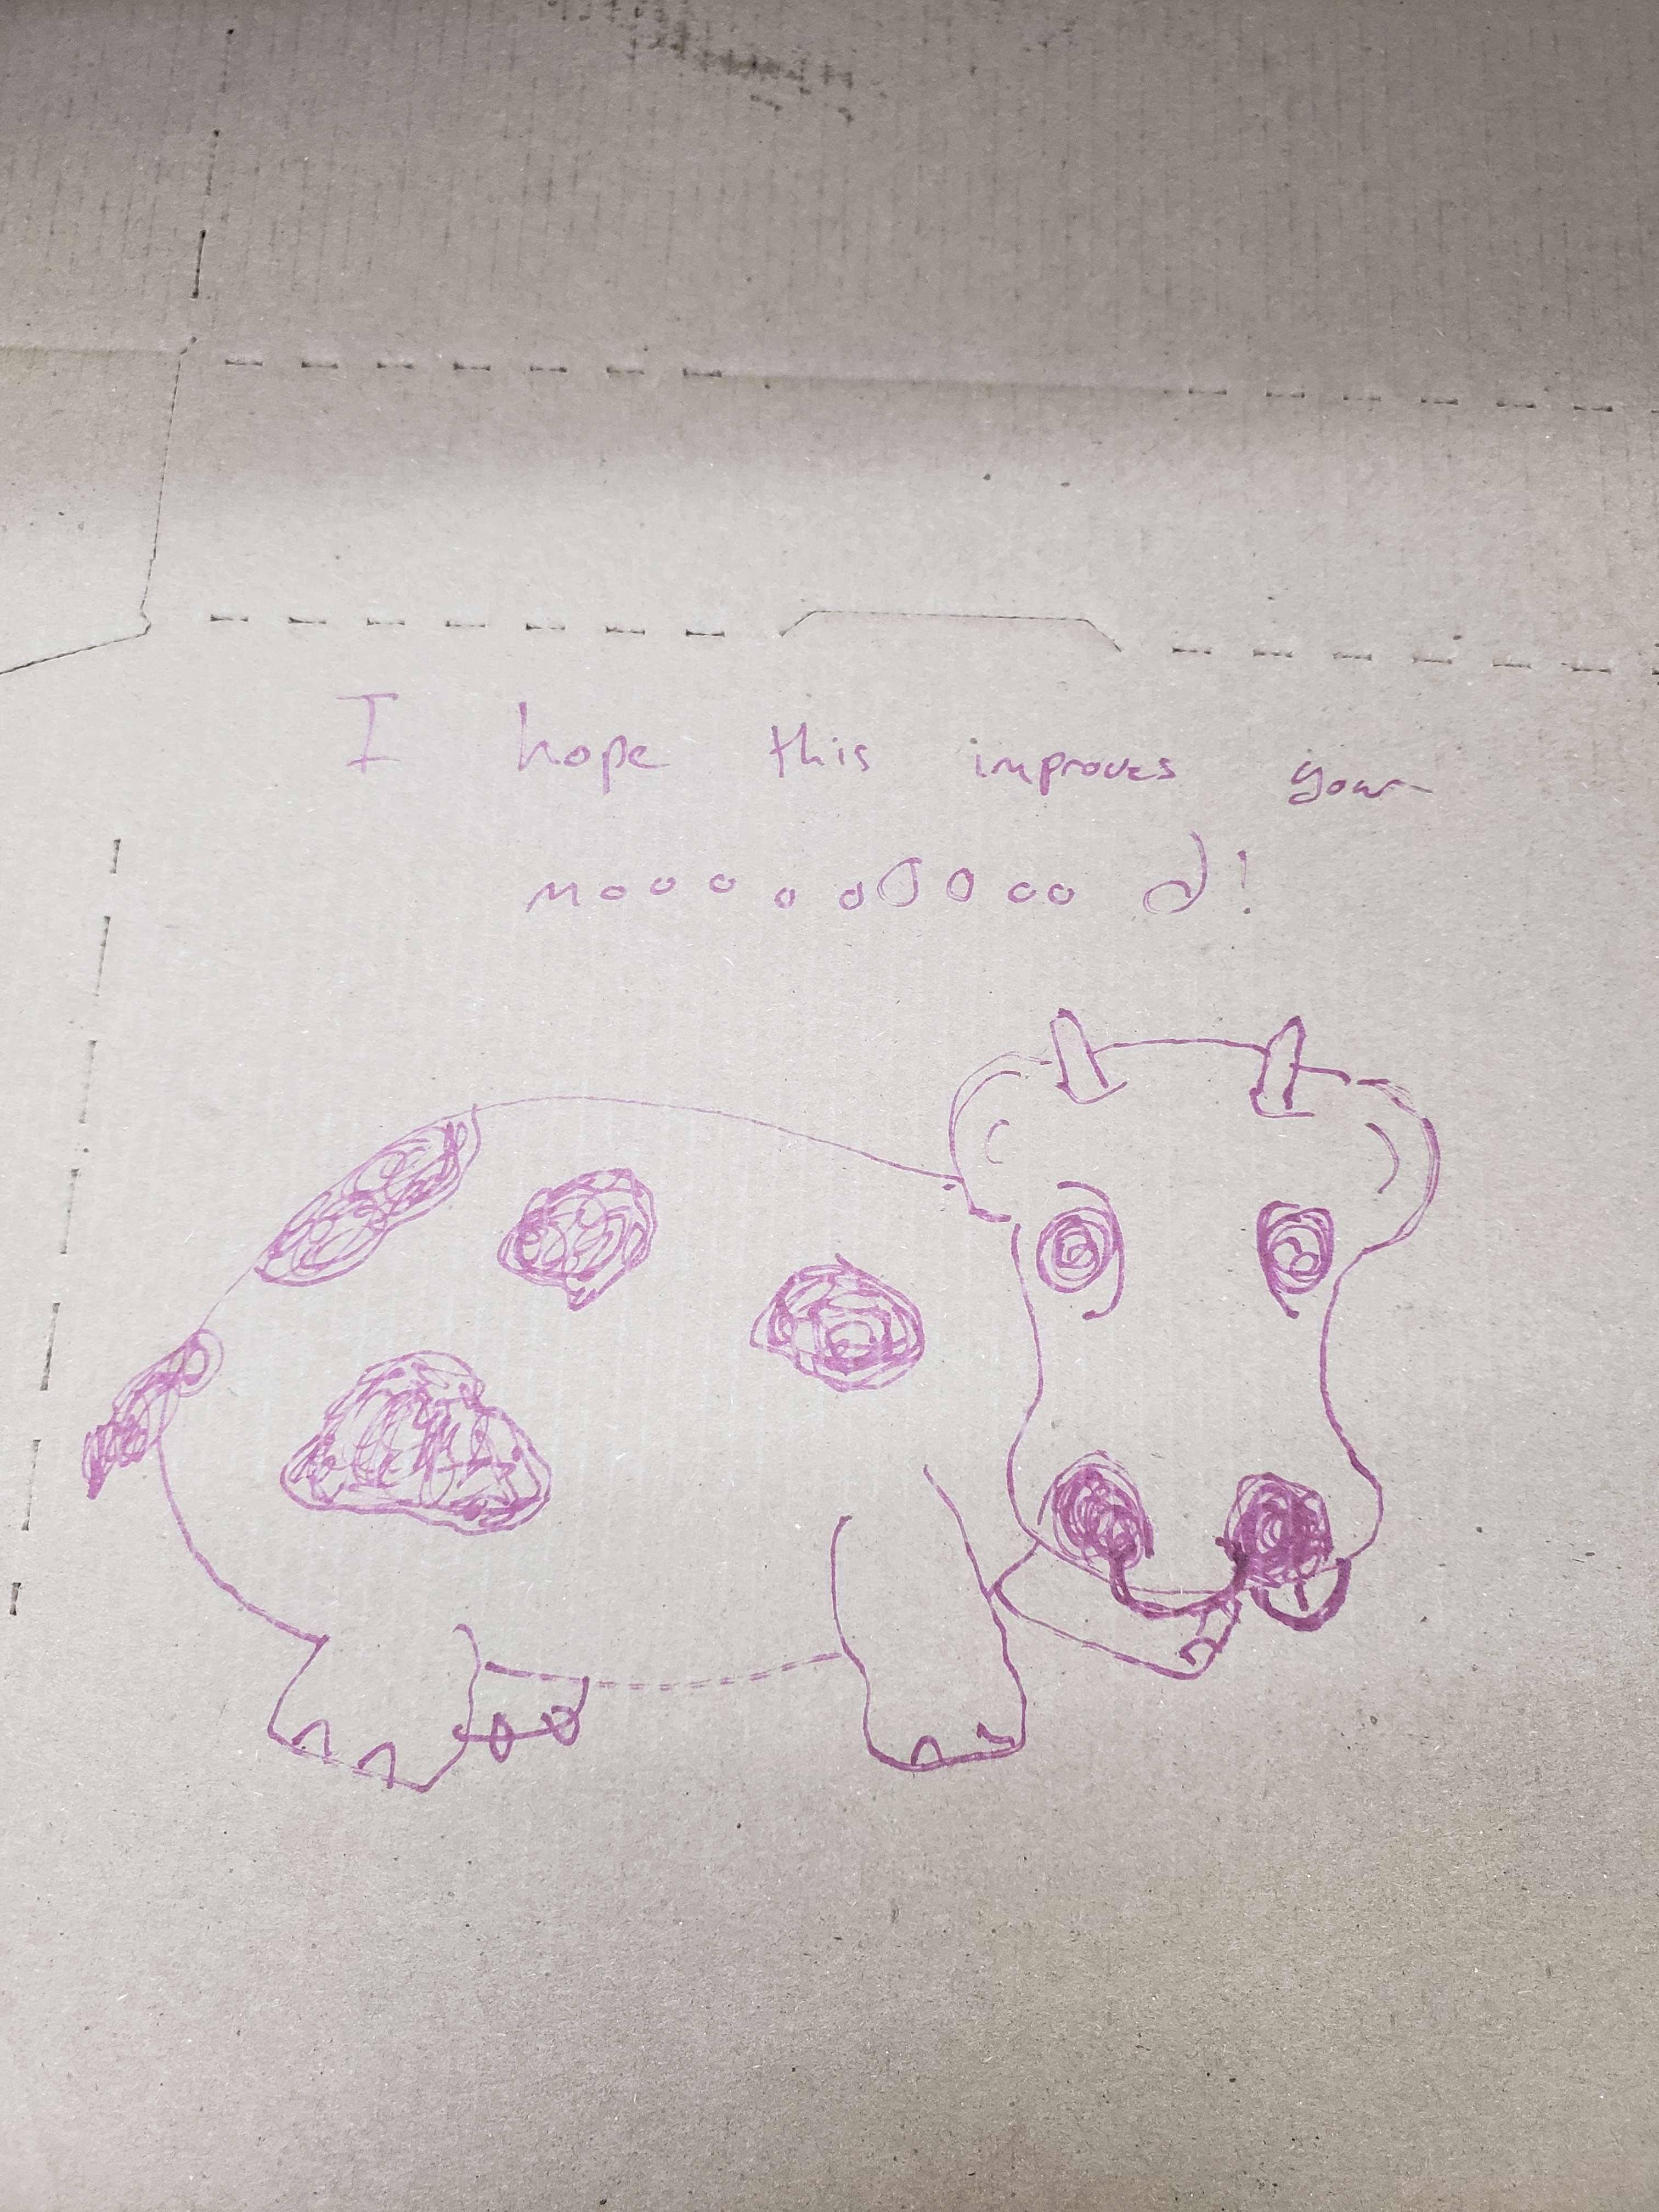 I hope this improves your
mooooo0Oood!